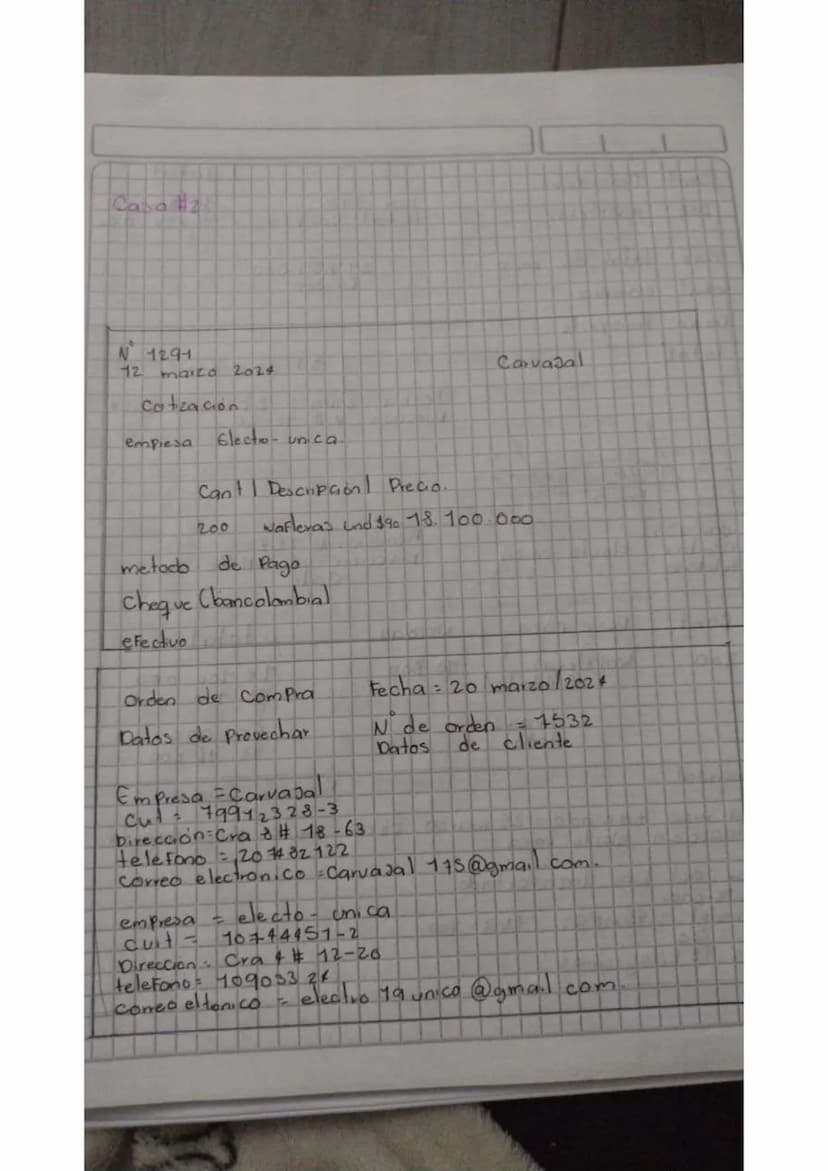 Caso #2
N° 1291
Carvajal
12 marzo 2024
Cotización
empresa Electro-unica.
Cant | Descripción | Precio.
200 wafleras und $90 18.100.000
metodo de Pago
Cheque (bancolombia)
efectivo
Orden de Compra Fecha = 20 marzo/2024
Datos de Provechar N° de orden = 1532
Datos de cliente
Empresa = Carvajal
Cut = 79912328-3
Dirección = Cra 8 # 18-63
telefono =
correo electronico = Carvajal 115@gmail com.
empresa = electo-unica
cuit = 10744451-2
Direccion = Cra 4 # 12-20
telefono =
correo eltonico = electro 19 unico @gmail com.